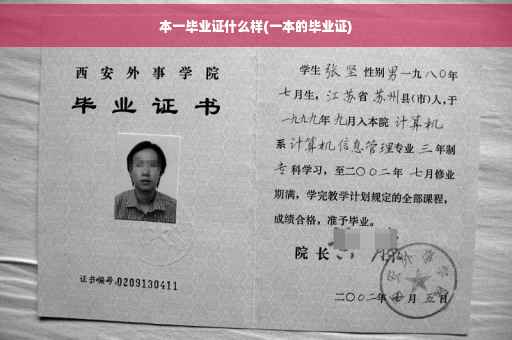 本一毕业证什么样(一本的毕业证)
西安外事学院
毕业证书
证书编号:0209130411
学生 张坚 性别 男 一九八〇年
七月生, 江苏省 苏州 县(市)人,于
一九九九年 九月入本院 计算机
系 计算机信息管理 专业 三 年制
专 科学习,至二〇〇二年 七月修业
期满,学完教学计划规定的全部课程,
成绩合格,准予毕业。
院长
二〇〇二年 月 五日